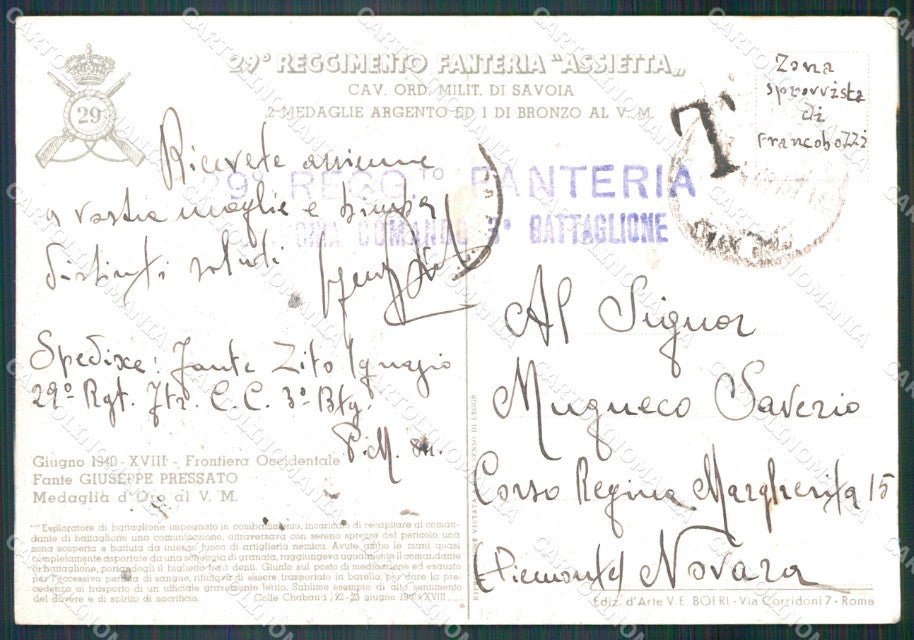 29
29º REGGIMENTO FANTERIA "ASSIETTA"
CAV. ORD. MILIT. DI SAVOIA
2 MEDAGLIE ARGENTO ED 1 DI BRONZO AL V. M.
T
Zona
sprovvista
di
francobozzi
29º REGG. FANTERIA
COMANDO 3º BATTAGLIONE
Ricevete assieme
a vostra moglie e bimbi
distinti saluti
Spedisce: Fante Zito Ignazio
29º Rgt. Ftr. C. C. 3º Btg.
P.M.
Giugno 1940 - XVIII - Frontiera Occidentale
Fante GIUSEPPE PRESSATO
Medaglia d'Oro al V. M.
"Esploratore di battaglione impegnato in combattimento, incaricato di recapitare al coman-
dante di battaglione una comunicazione, attraversava con sereno sprezzo del pericolo una
zona scoperta e battuta da intenso fuoco di artiglieria nemica. Avute ambo le mani quasi
completamente asportate da una scheggia di granata, raggiungeva ugualmente il comandante
di battaglione, portandogli il biglietto tra i denti. Giunto sul posto di medicazione ed esausto
per l'eccessiva perdita di sangue, rifiutava di essere trasportato in barella, per dare la pre-
cedenza al trasporto di un ufficiale gravemente ferito. Sublime esempio di alto sentimento
del dovere e di spirito di sacrificio. Colle Chabaud, 22-23 giugno 1940-XVIII
Al Signor
Mugneco Saverio
Corso Regina Margherita 15
(Piemonte) Novara
Ediz. d'Arte V. E. BOERI - Via Corridoni 7 - Roma
CARTOLINOMANIA